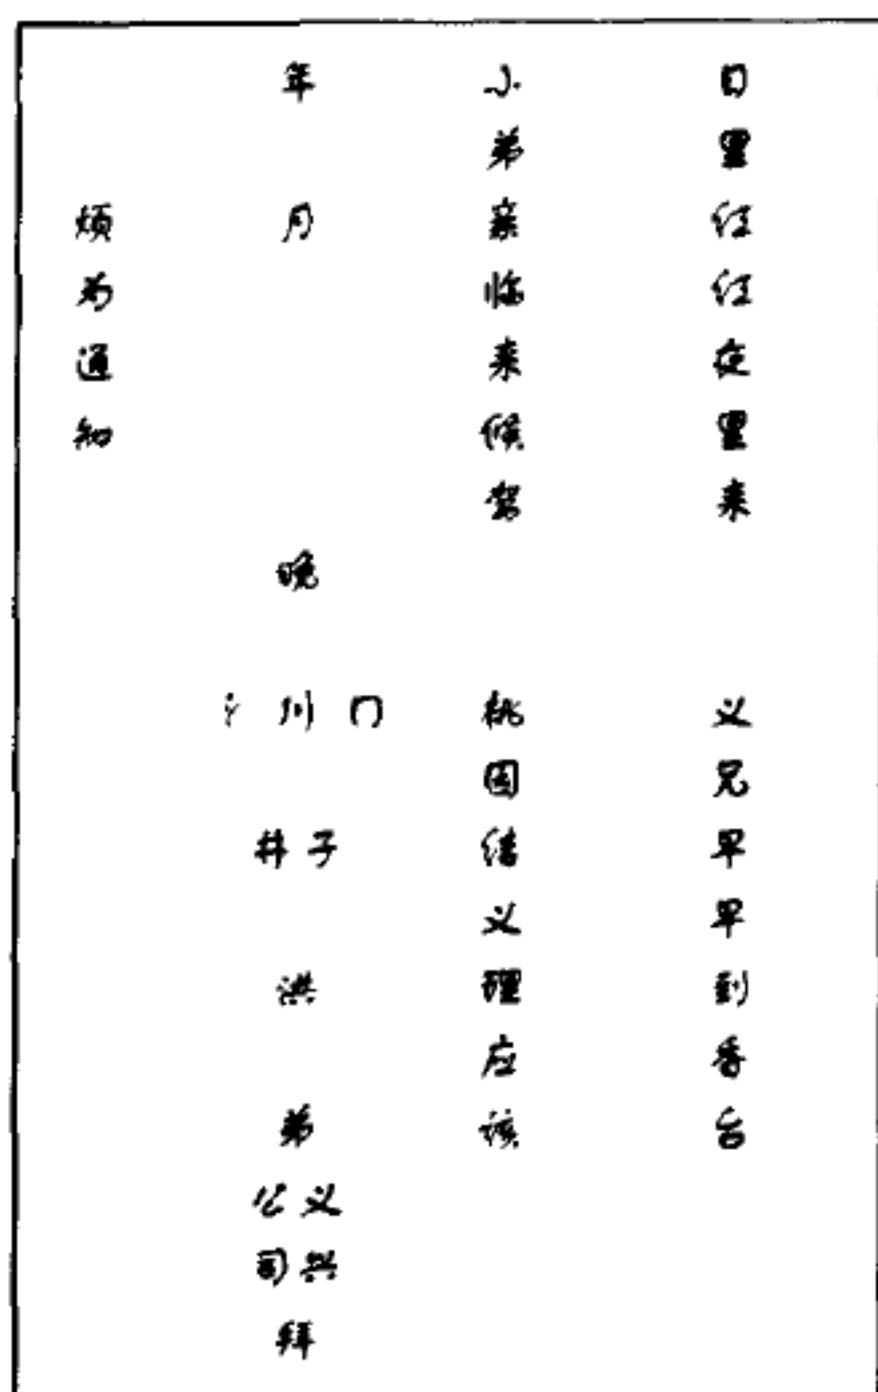 日里红红夜里来 义兄早早到香台
小弟亲临来候驾 桃园结义理应该
年 月 晚 门川氵 子井 洪弟 义兴公司 拜
烦为通知